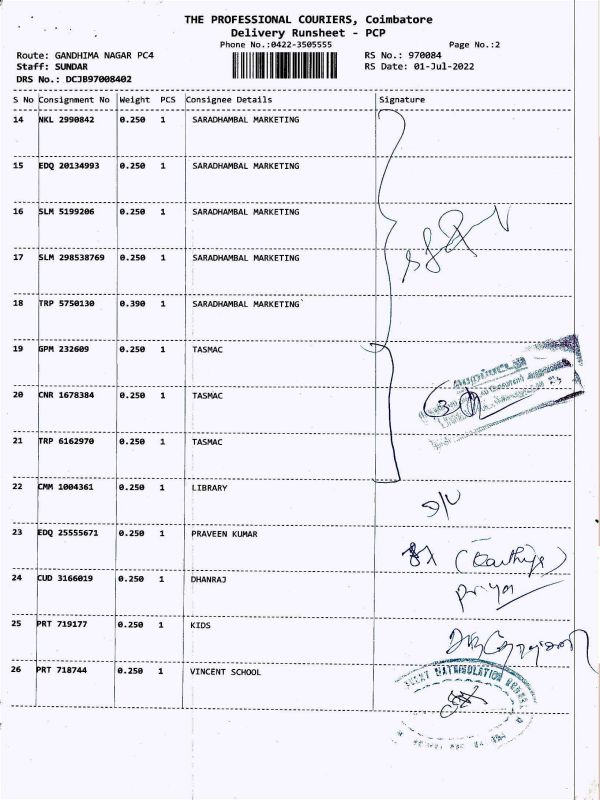 THE PROFESSIONAL COURIERS, Coimbatore
Delivery Runsheet - PCP
Phone No.:0422-3505555
Page No.:2
Route: GANDHIMA NAGAR PC4
RS No.: 970084
Staff: SUNDAR
RS Date: 01-Jul-2022
DRS No.: DCJB97008402
S No Consignment No Weight PCS Consignee Details Signature
14 NKL 2990842 0.250 1 SARADHAMBAL MARKETING
15 EDQ 20134993 0.250 1 SARADHAMBAL MARKETING
16 SLM 5199206 0.250 1 SARADHAMBAL MARKETING
17 SLM 298538769 0.250 1 SARADHAMBAL MARKETING
18 TRP 5750130 0.390 1 SARADHAMBAL MARKETING`
19 GPM 232609 0.250 1 TASMAC
20 CNR 1678384 0.250 1 TASMAC
21 TRP 6162970 0.250 1 TASMAC
22 CMM 1004361 0.250 1 LIBRARY
23 EDQ 25555671 0.250 1 PRAVEEN KUMAR
24 CUD 3166019 0.250 1 DHANRAJ
Priya
25 PRT 719177 0.250 1 KIDS
26 PRT 718744 0.250 1 VINCENT SCHOOL